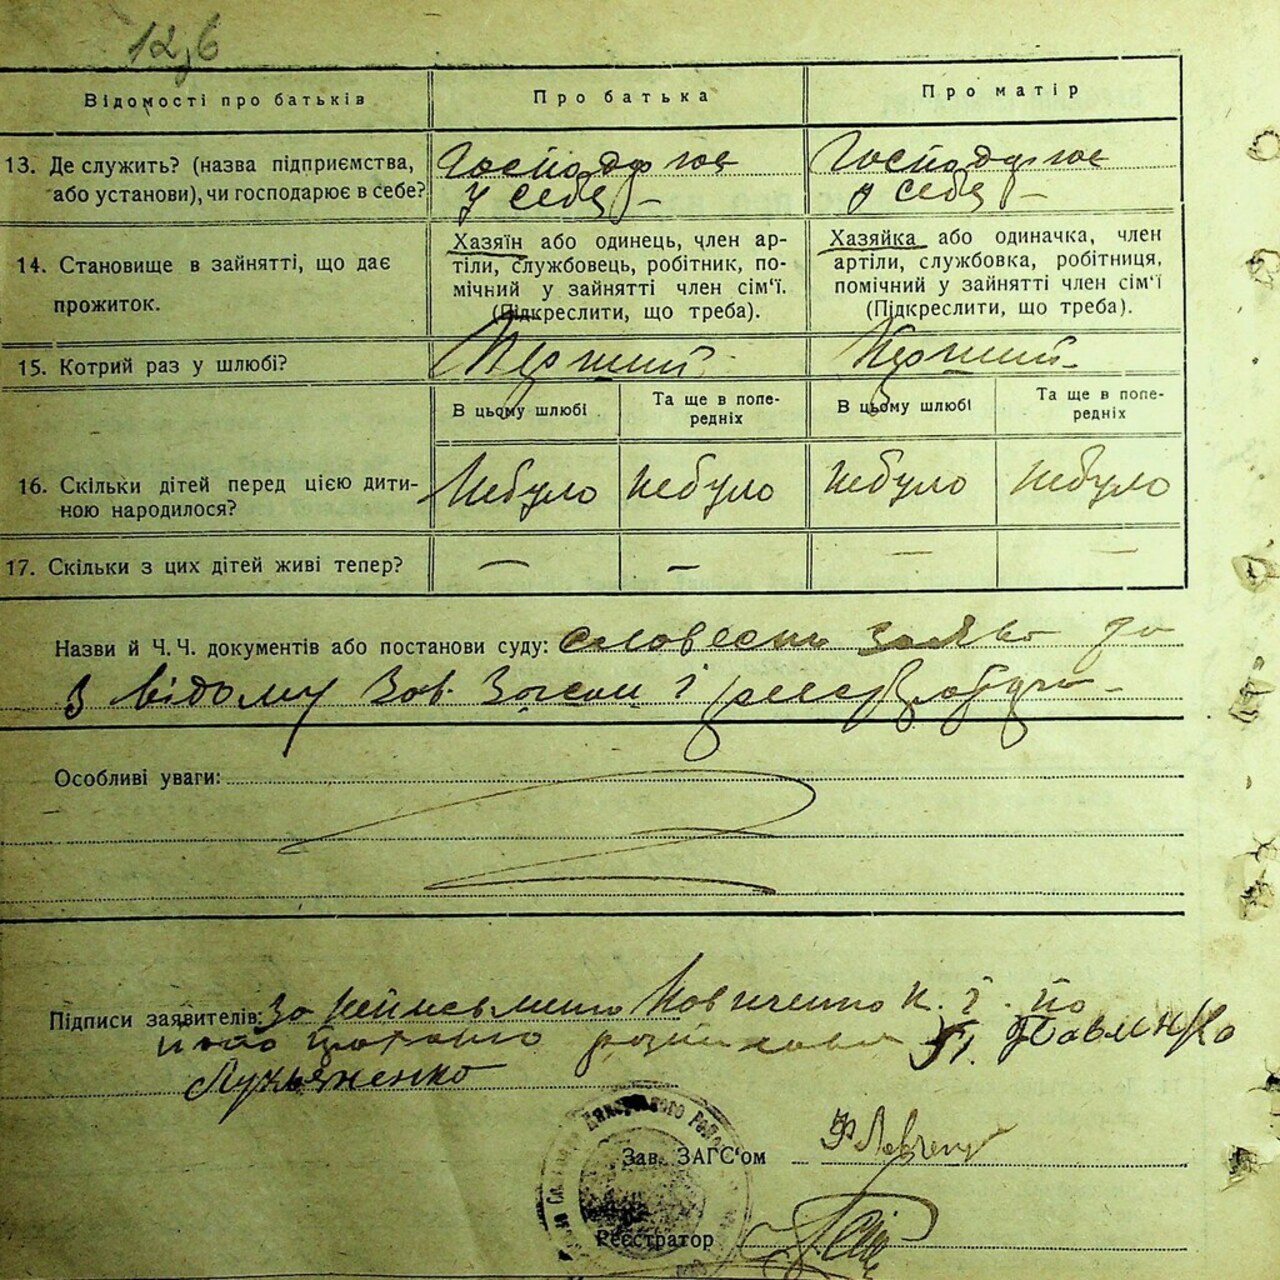 126
Відомості про батьків
Про батька
Про матір
13. Де служить? (назва підприємства, або установи), чи господарює в себе?
Господарює
у себе –
Господарює
у себе –
14. Становище в зайнятті, що дає прожиток.
Хазяїн або одинець, член ар-
тілі, службовець, робітник, по-
мічний у зайнятті член сім'ї.
(Підкреслити, що треба).
Хазяйка або одиначка, член
артілі, службовка, робітниця,
помічний у зайнятті член сім'ї
(Підкреслити, що треба).
15. Котрий раз у шлюбі?
Перший
Перший
В цьому шлюбі
Та ще в попе-
редніх
В цьому шлюбі
Та ще в попе-
редніх
16. Скільки дітей перед цією дити-
ною народилося?
Небуло
небуло
небуло
небуло
17. Скільки з цих дітей живі тепер?
– – – –
Назви й Ч. Ч. документів або постанови суду: словесна заява до
відому Зав. Загсом і
Особливі уваги:
Підписи заявителів: За неписьменого К. І. по
його
Лук'яненко
Зав. ЗАГС'ом
Реєстратор